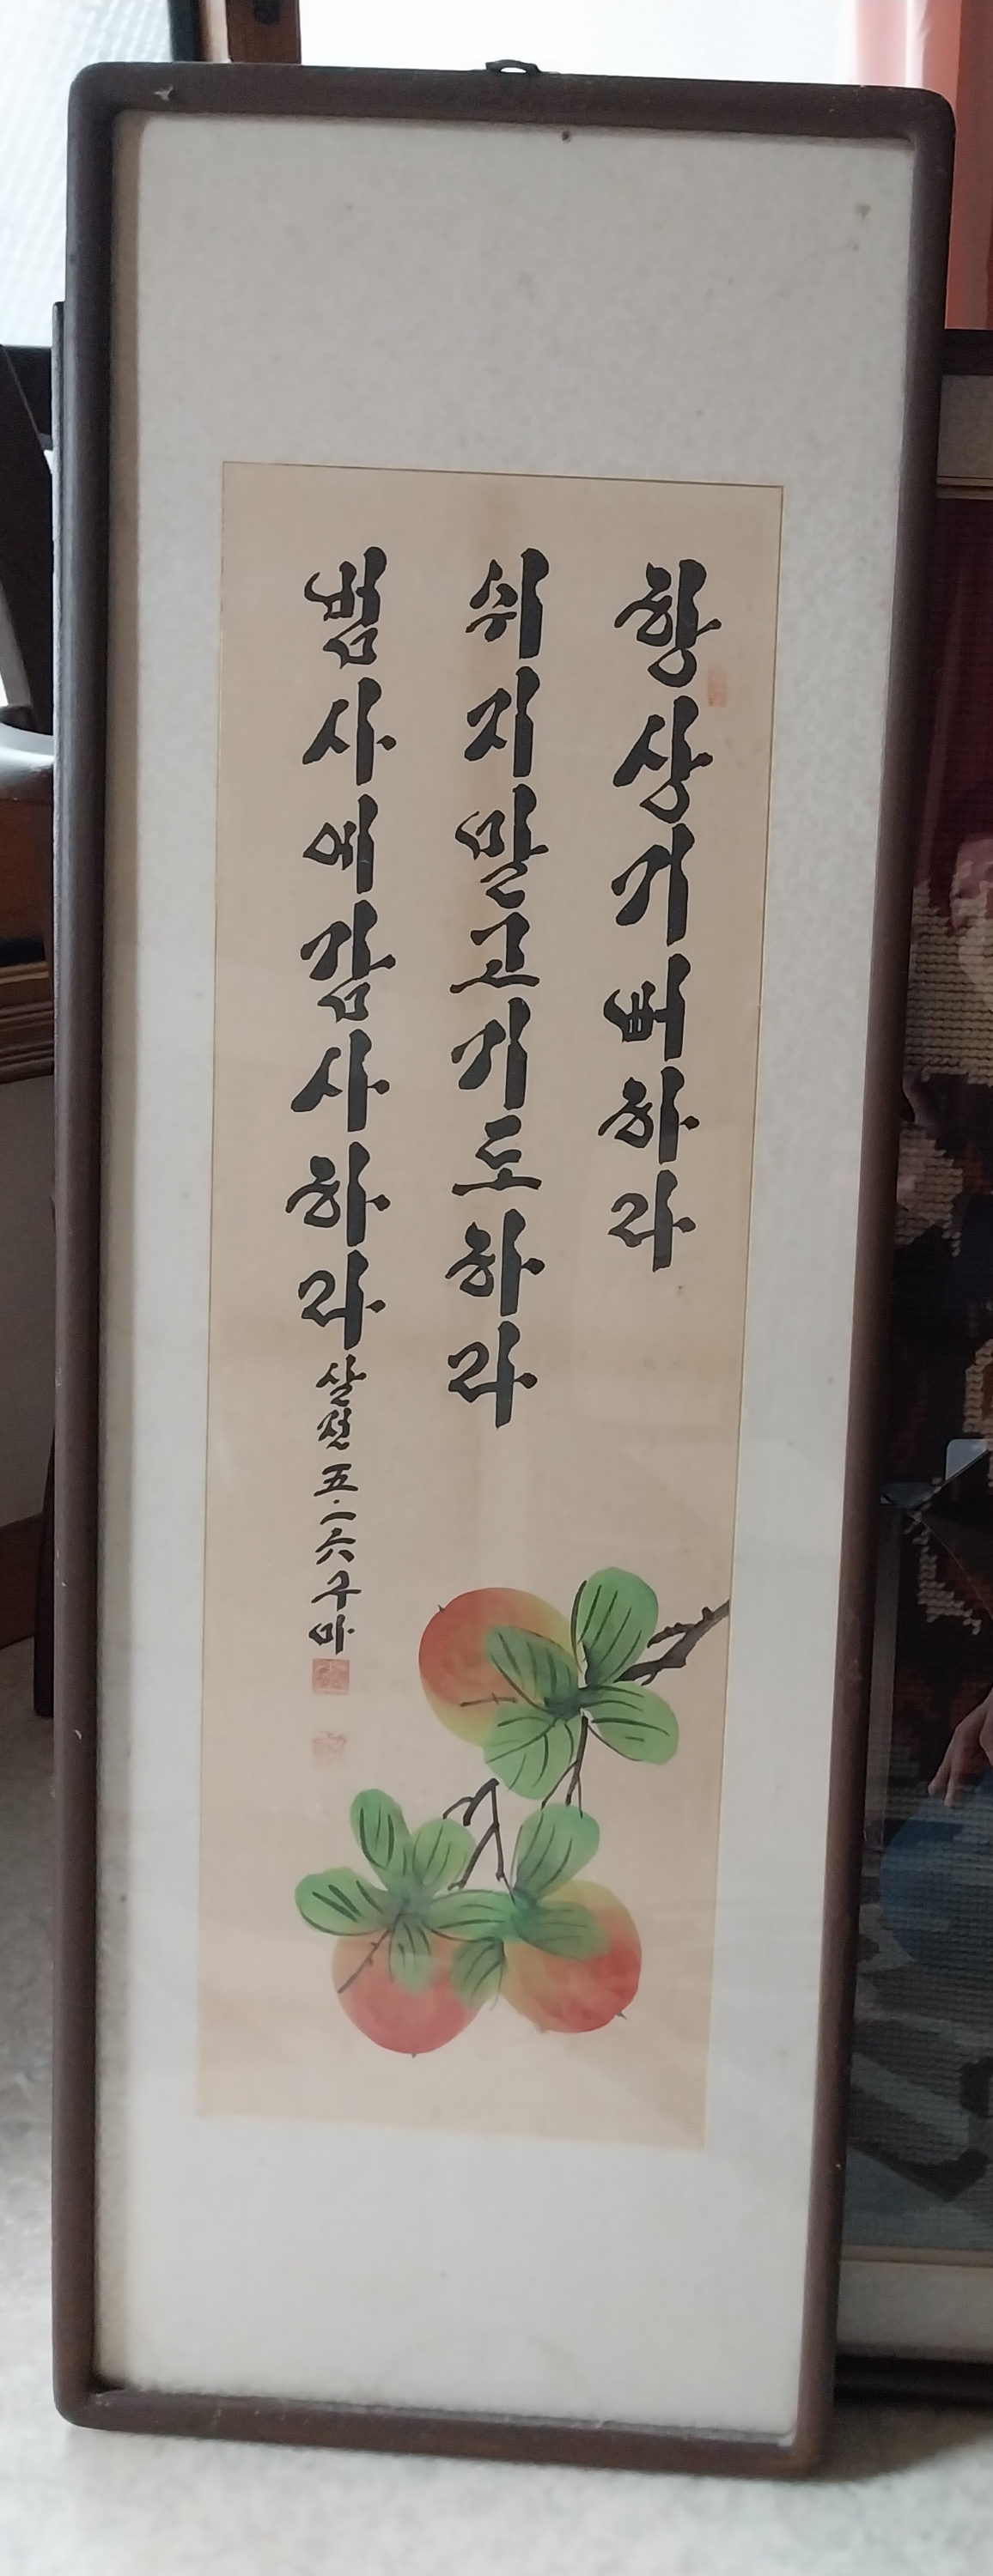 항상기뻐하라
쉬지말고기도하라
범사에감사하라
살전五·一六 구마